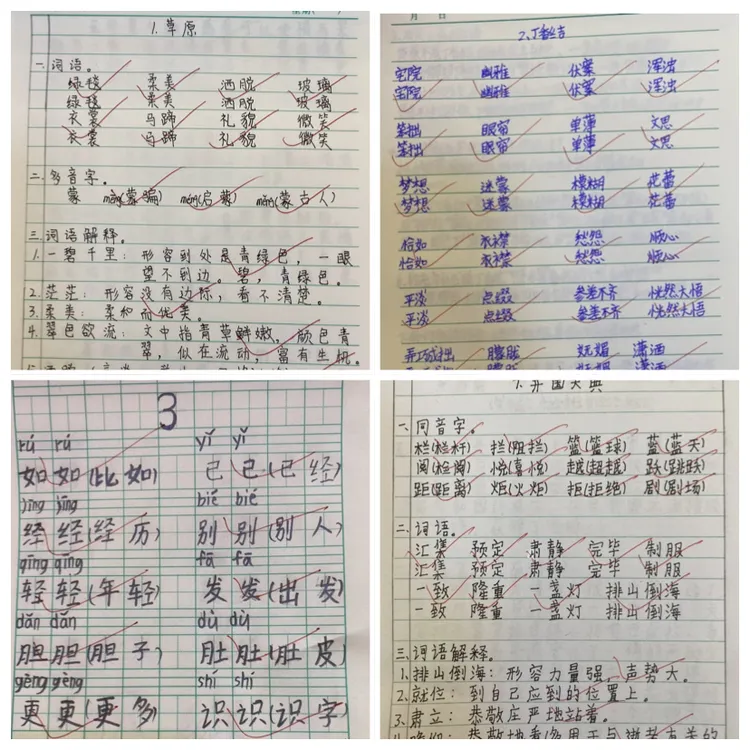 1. 草原
一. 词语。
绿毯 柔美 洒脱 玻璃
绿毯 柔美 洒脱 玻璃
衣裳 马蹄 礼貌 微笑
衣裳 马蹄 礼貌 微笑
二. 多音字。
蒙 mēng(蒙骗) méng(启蒙) měng(蒙古人)
三. 词语解释。
1. 一碧千里: 形容到处是青绿色, 一眼
望不到边。碧, 青绿色。
2. 茫茫: 形容没有边际, 看不清楚。
3. 柔美: 柔和而优美。
4. 翠色欲流: 文中指青草鲜嫩, 颜色青
翠, 似在流动, 富有生机。
月 日
2. 丁香结
宅院 幽雅 伏案 浑浊
宅院 幽雅 伏案 浑浊
笨拙 眼帘 单薄 文思
笨拙 眼帘 单薄 文思
梦想 迷蒙 模糊 花蕾
梦想 迷蒙 模糊 花蕾
恰如 衣襟 愁怨 顺心
恰如 衣襟 愁怨 顺心
平淡 点缀 参差不齐 恍然大悟
平淡 点缀 参差不齐 恍然大悟
弄巧成拙 朦胧 妩媚 潇洒
3
rú rú yǐ yǐ
如 如(比如) 已 已(已经)
jīng jīng bié bié
经 经(经历) 别 别(别人)
qīng qīng fā fā
轻 轻(年轻) 发 发(出发)
dǎn dǎn dù dù
胆 胆(胆子) 肚 肚(肚皮)
gèng gèng shí shí
更 更(更多) 识 识(识字)
7. 开国大典
一. 同音字。
栏(栏杆) 拦(阻拦) 篮(篮球) 蓝(蓝天)
阅(检阅) 悦(喜悦) 越(超越) 跃(跳跃)
距(距离) 炬(火炬) 拒(拒绝) 剧(剧场)
二. 词语。
汇集 预定 肃静 完毕 制服
汇集 预定 肃静 完毕 制服
一致 隆重 一盏灯 排山倒海
一致 隆重 一盏灯 排山倒海
三. 词语解释。
1. 排山倒海: 形容力量强, 声势大。
2. 就位: 到自己应到的位置上。
3. 肃立: 恭敬庄严地站着。